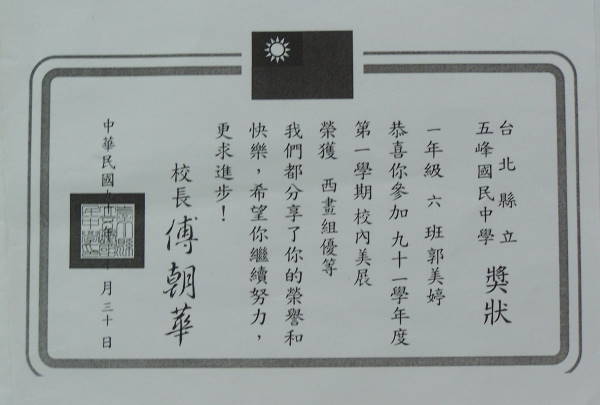 台北縣立
五峰國民中學
獎狀
一年級 六 班郭美婷
恭喜你參加 九十一學年度
第一學期 校內美展
榮獲 西畫組優等
我們都分享了你的榮譽和
快樂，希望你繼續努力，
更求進步！
校長 傅朝華
中華民國 年 月三十日